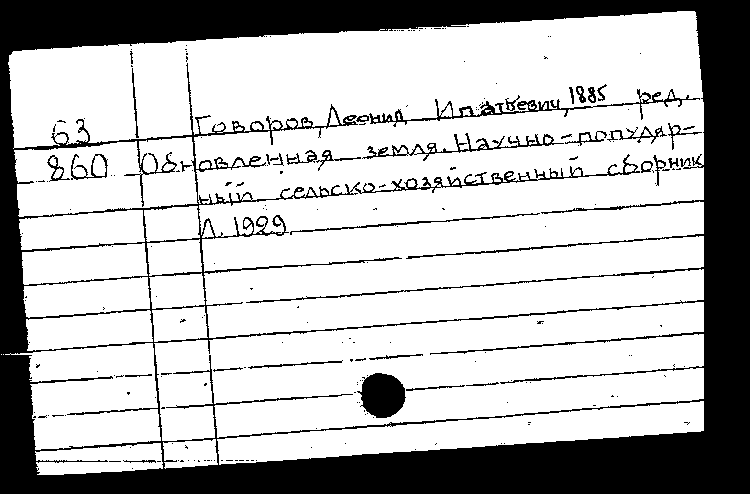 63 Говоров, Леонид Ипатьевич, 1885 ред.
860 Обновленная земля. Научно-популяр-
ный сельско-хозяйственный сборник
Л. 1929.